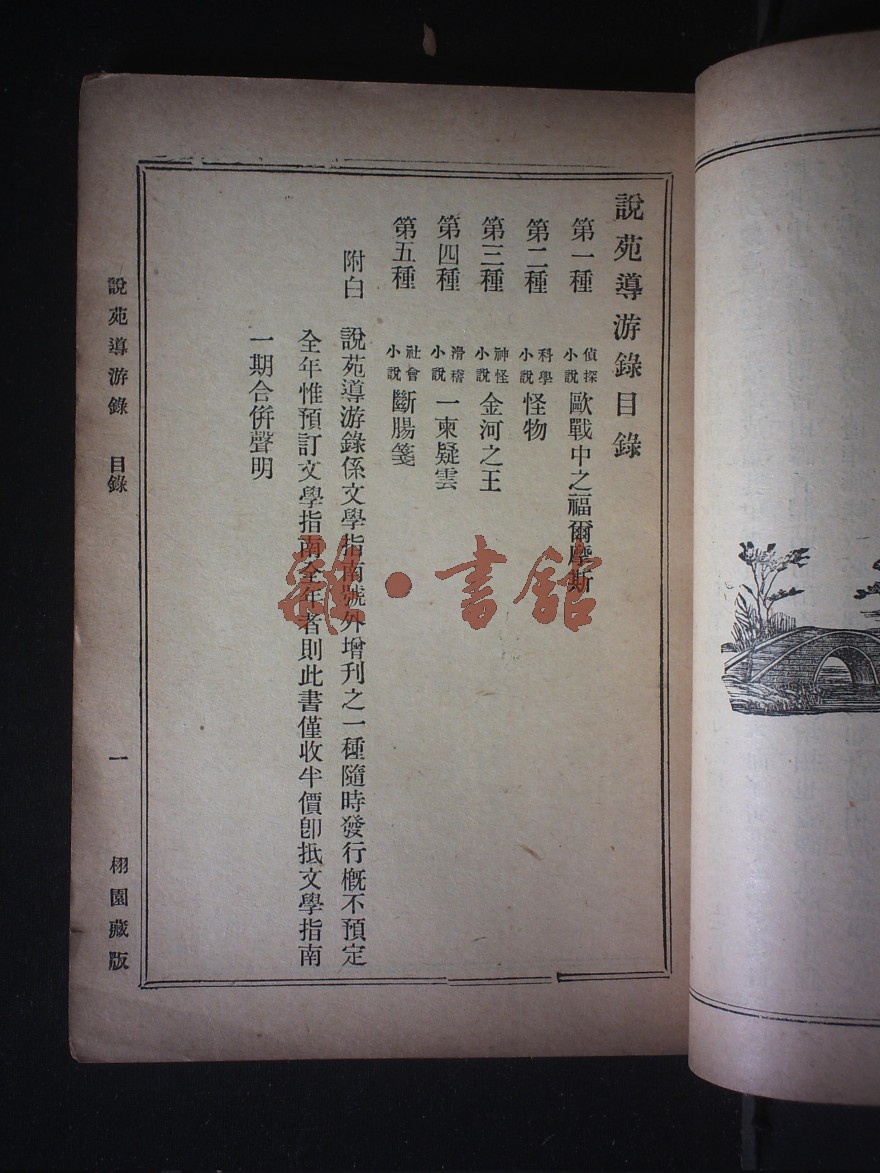 說苑導游錄目錄
第一種 偵探小說 歐戰中之福爾摩斯
第二種 科學小說 怪物
第三種 神怪小說 金河之王
第四種 滑稽小說 一柬疑雲
第五種 社會小說 斷腸箋
附白 說苑導游錄係文學指南號外增刊之一種隨時發行槪不預定
全年惟預訂文學指南全年者則此書僅收半價卽抵文學指南
一期合倂聲明
說苑導游錄 目錄 一 栩園藏版
雜·書館